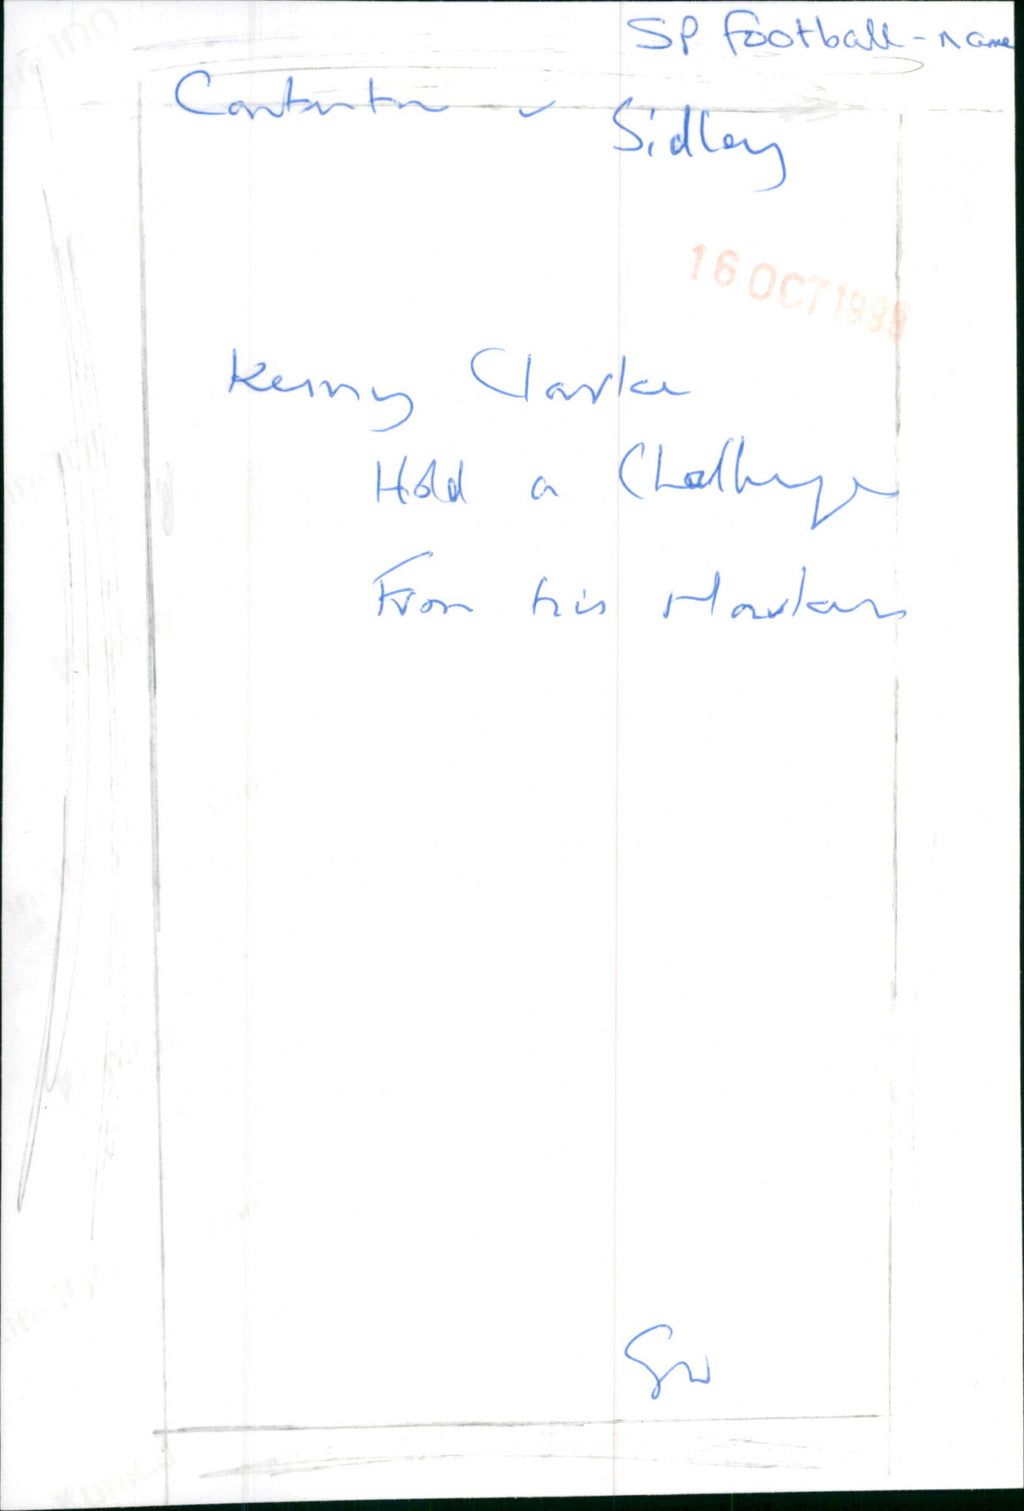 SP Football - name
v Sidley
16 OCT 199
Kenny Clarke
Hold a Challenge
From his Markers